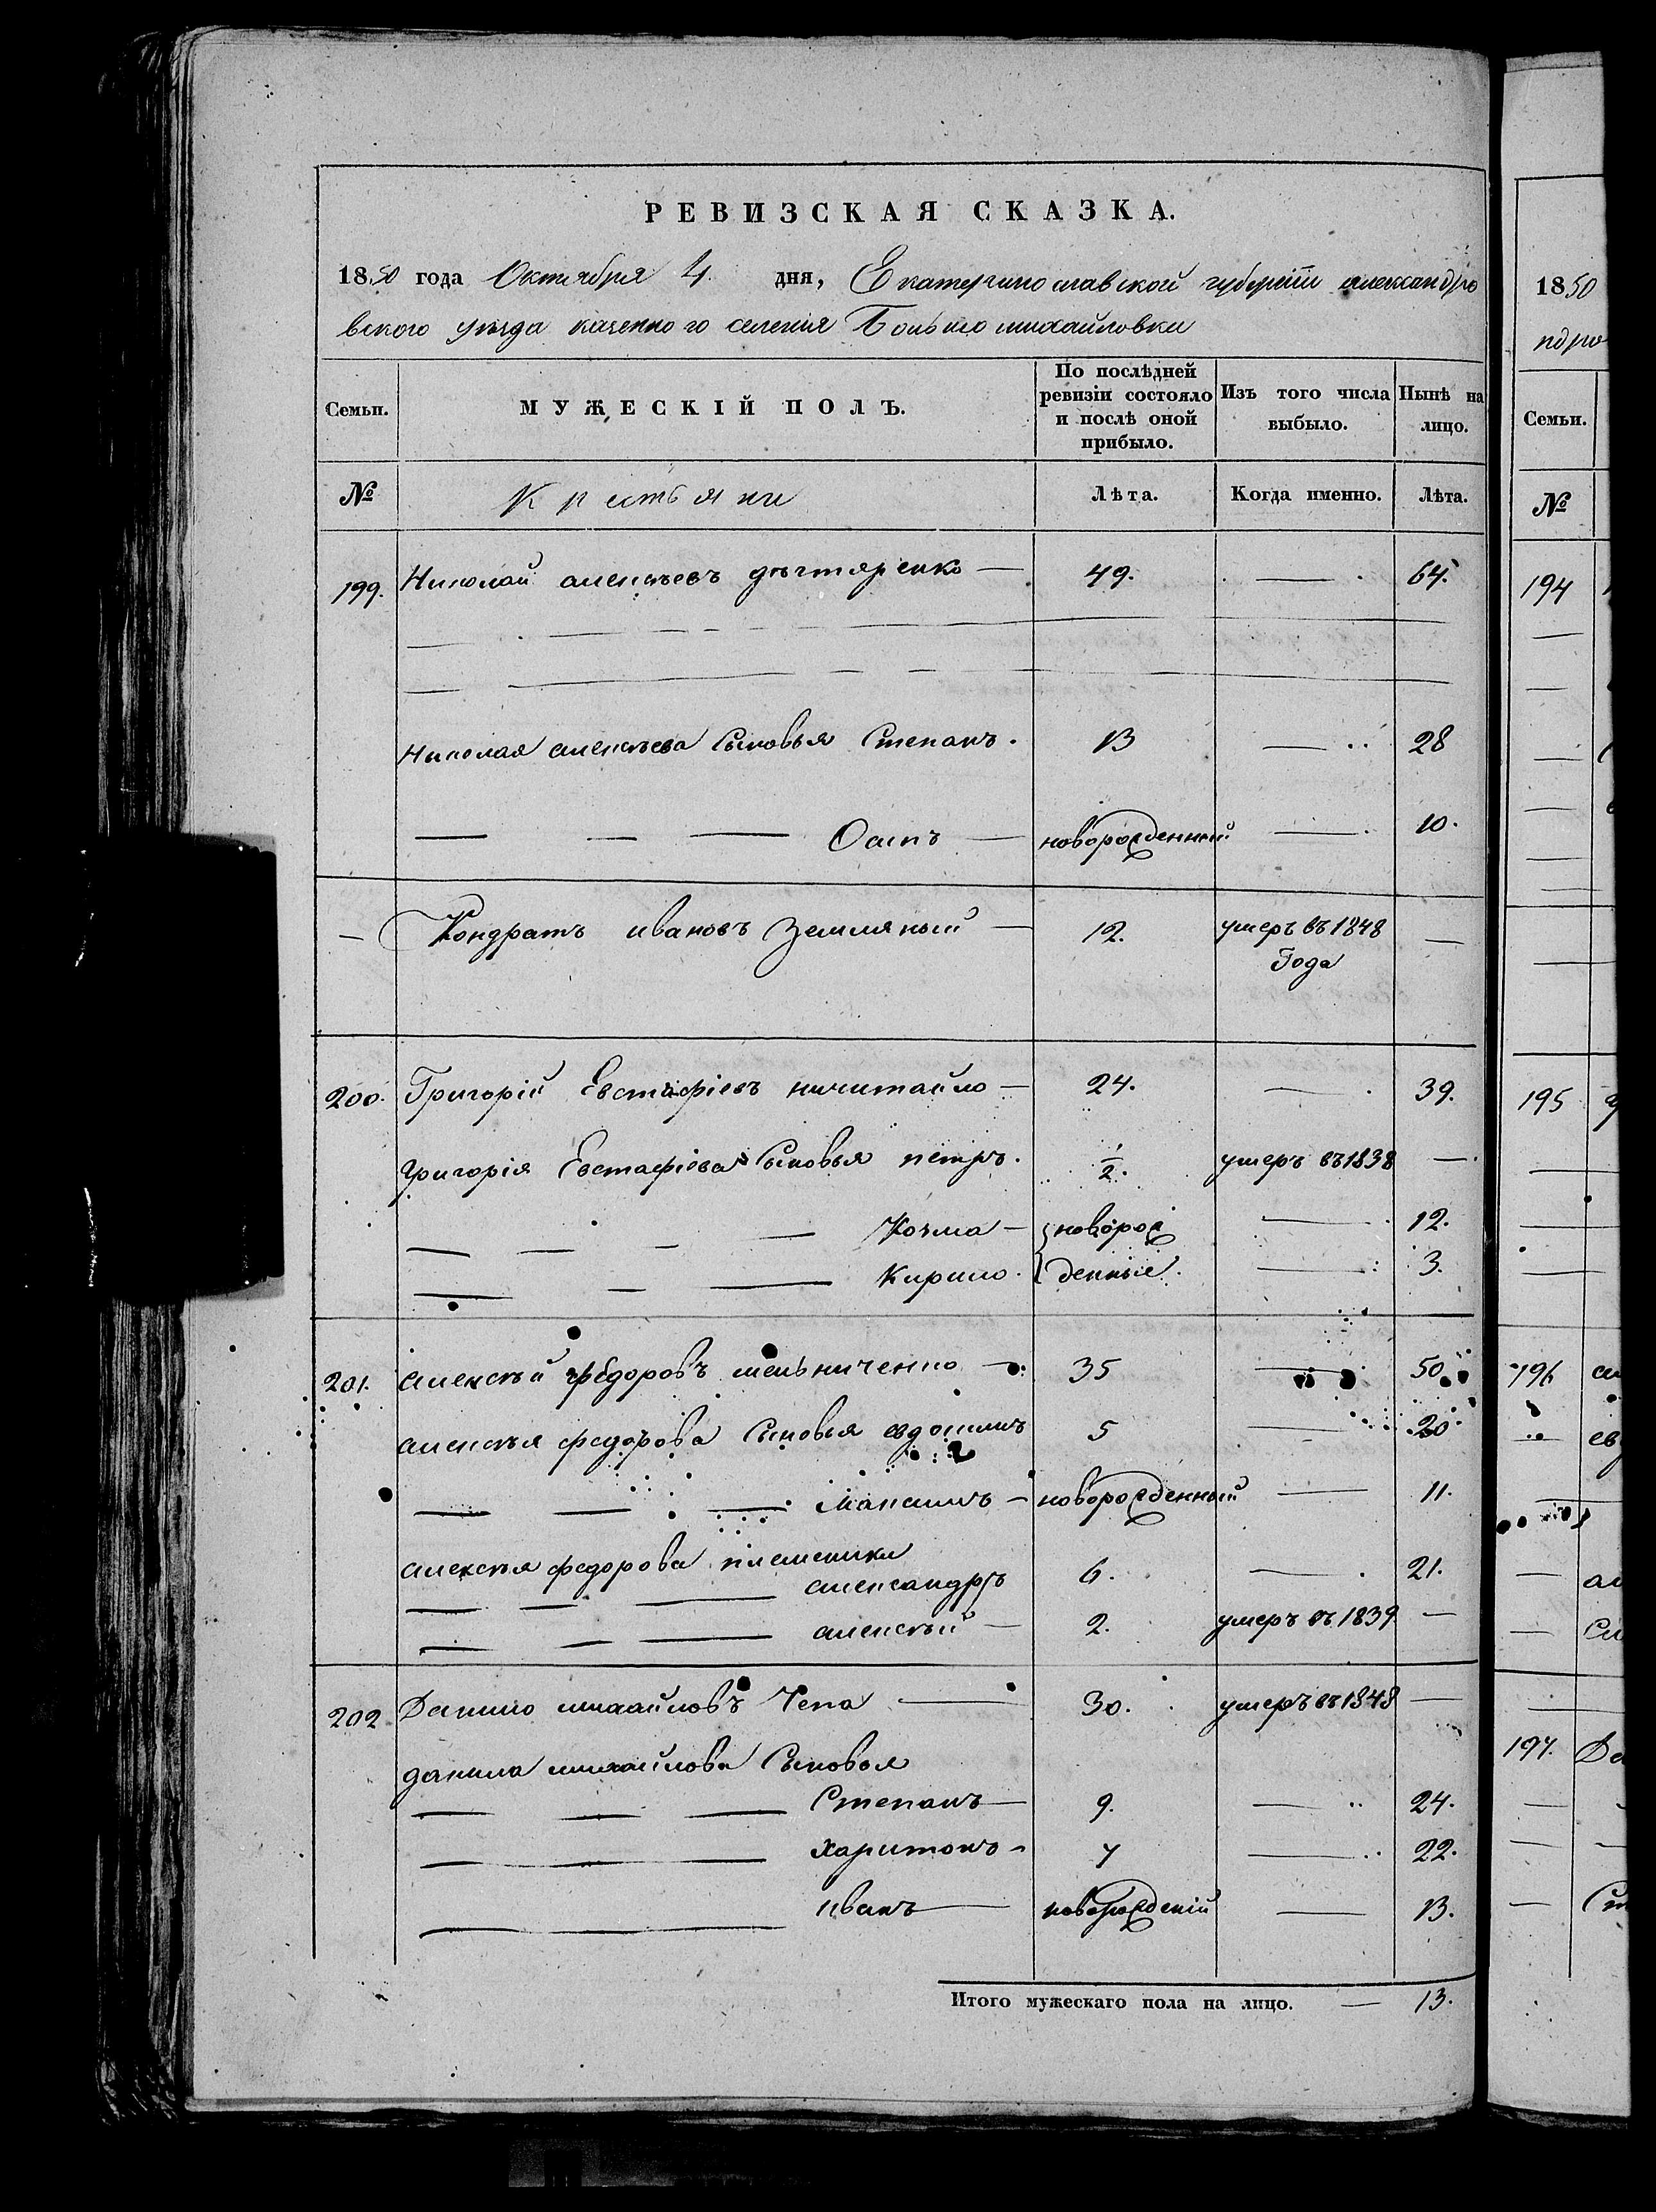 РЕВИЗСКАЯ СКАЗКА.
1850 года Октября 4. дня, Екатеринославской губерніи александро
вского уѣзда казенного селенія Большомихайловки
Семьи. МУЖЕСКІЙ ПОЛЪ. По послѣдней ревизіи состояло и послѣ оной прибыло. Изъ того числа выбыло. Нынѣ на лицо.
№ Крестьяни Лѣта. Когда именно. Лѣта.
199. Николай алексѣевъ дѣхтяренко — 49. — 64.
Николая алексѣева сыновья Степанъ. 13 — 28
Осипъ — новорожденный — 10.
— Кондратъ ивановъ Земляный — 12. умеръ въ 1848 —
Года
200. Григорій Евстафіевъ ничитайло — 24. — 39.
григорія Евстафіева сыновья петръ. 1/2. умеръ въ 1838 —
Козма — новорож — 12.
Кирило. денные. — 3.
201. алексѣй федоровъ мельниченко — 35 — 50
алексѣя федорова сыновья евдокимъ 5 — 20
Максимъ — новорожденный — 11.
алексѣя федорова племеники
александръ 6. — 21.
алексѣй — 2. умеръ въ 1839 —
202 Данило михайловъ Чепа — 30. умеръ въ 1848 —
данила михайлова сыновья
Степанъ — 9. — 24.
Харитонъ — 7 — 22.
иванъ — новорожденій — 13.
Итого мужескаго пола на лицо. — 13.
1850
ндро
Семьи.
№
194
195
196
ев
197. Да
Ст